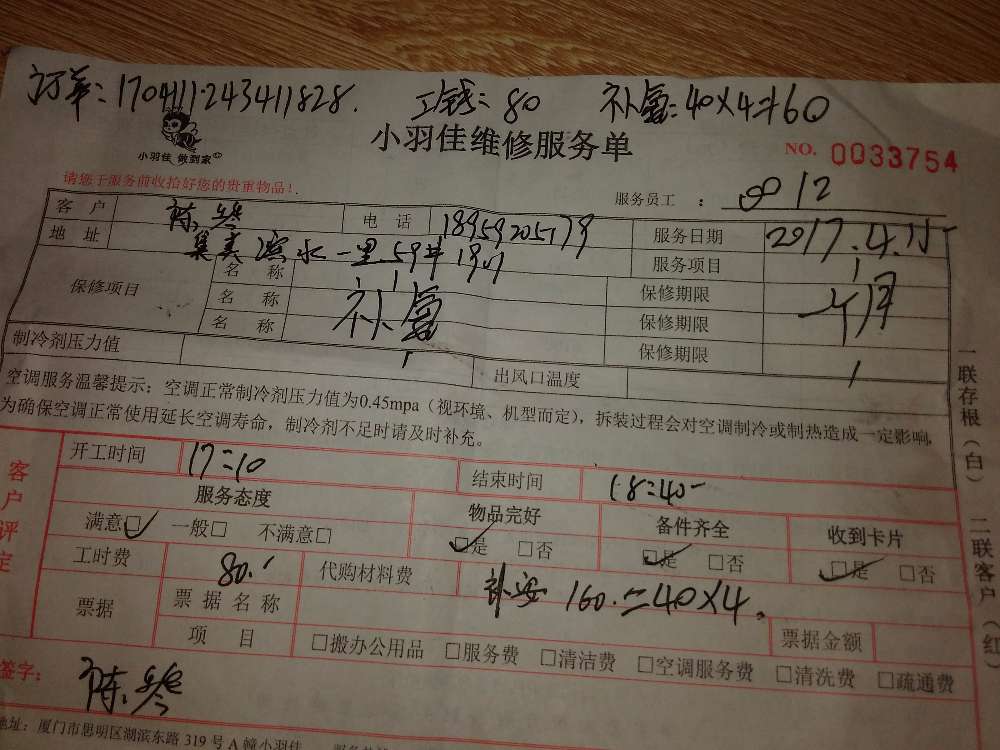 订单：170411243411828. 工钱：80 补氟：40×4=160
小羽佳 做到家
小羽佳维修服务单
NO. 0033754
请您于服务前收拾好您的贵重物品！
服务员工 ： 812
客 户 陈 电 话 18959205179 服务日期 2017.4.
地 址 集美滨水一里59# 服务项目
保修项目 名 称 保修期限
名 称 补氟 保修期限 月
名 称 保修期限
制冷剂压力值 出风口温度
空调服务温馨提示：空调正常制冷剂压力值为0.45mpa（视环境、机型而定），拆装过程会对空调制冷或制热造成一定影响，
为确保空调正常使用延长空调寿命，制冷剂不足时请及时补充。
一联存根（白） 二联客户（红）
客户评定
开工时间 17:10 结束时间 18:40
服务态度 物品完好 备件齐全 收到卡片
满意☑ 一般□ 不满意□ ☑是 □否 ☑是 □否 ☑是 □否
工时费 80. 代购材料费 补 160.=40×4.
票据 票据名称 票据金额
项 目 □搬办公用品 □服务费 □清洁费 □空调服务费 □清洗费 □疏通费
签字： 陈
地址：厦门市思明区湖滨东路 319 号 A 幢小羽佳